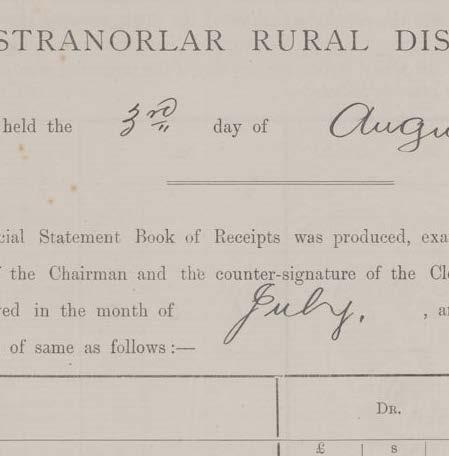 STRANORLAR RURAL DIS
held the 3rd day of Augu
cial Statement Book of Receipts was produced, exa
f the Chairman and the counter-signature of the Cle
ved in the month of July. , a
of same as follows :—
DR.
£ s